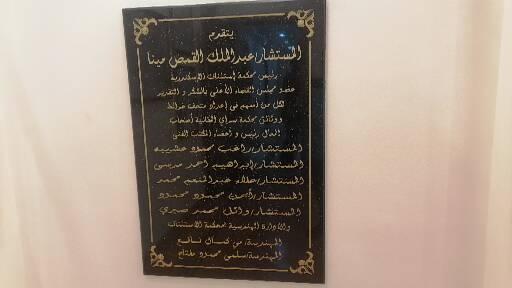 يتقدم
المستشار/عبد الملك القمص مينا
رئيس محكمة إستئناف الإسكندرية
عضو مجلس القضاء الأعلى بالشكر و التقدير
لكل من أسهم في إعداد متحف خرائط
ووثائق محكمة سراي الحقانية أصحاب
العدل رئيس و أعضاء المكتب الفني
المستشار/راغب محمود عشيبه
المستشار/إبراهيم أحمد مرسى
المستشار/علاء عبد المنعم محمد
المستشار/أيمن محمود محمود
المستشار/وائل محمد صبري
والإدارة الهندسية لمحكمة الاستئناف
المهندسة/من كمال نافع
المهندسة/سلمى محمود مفتاح